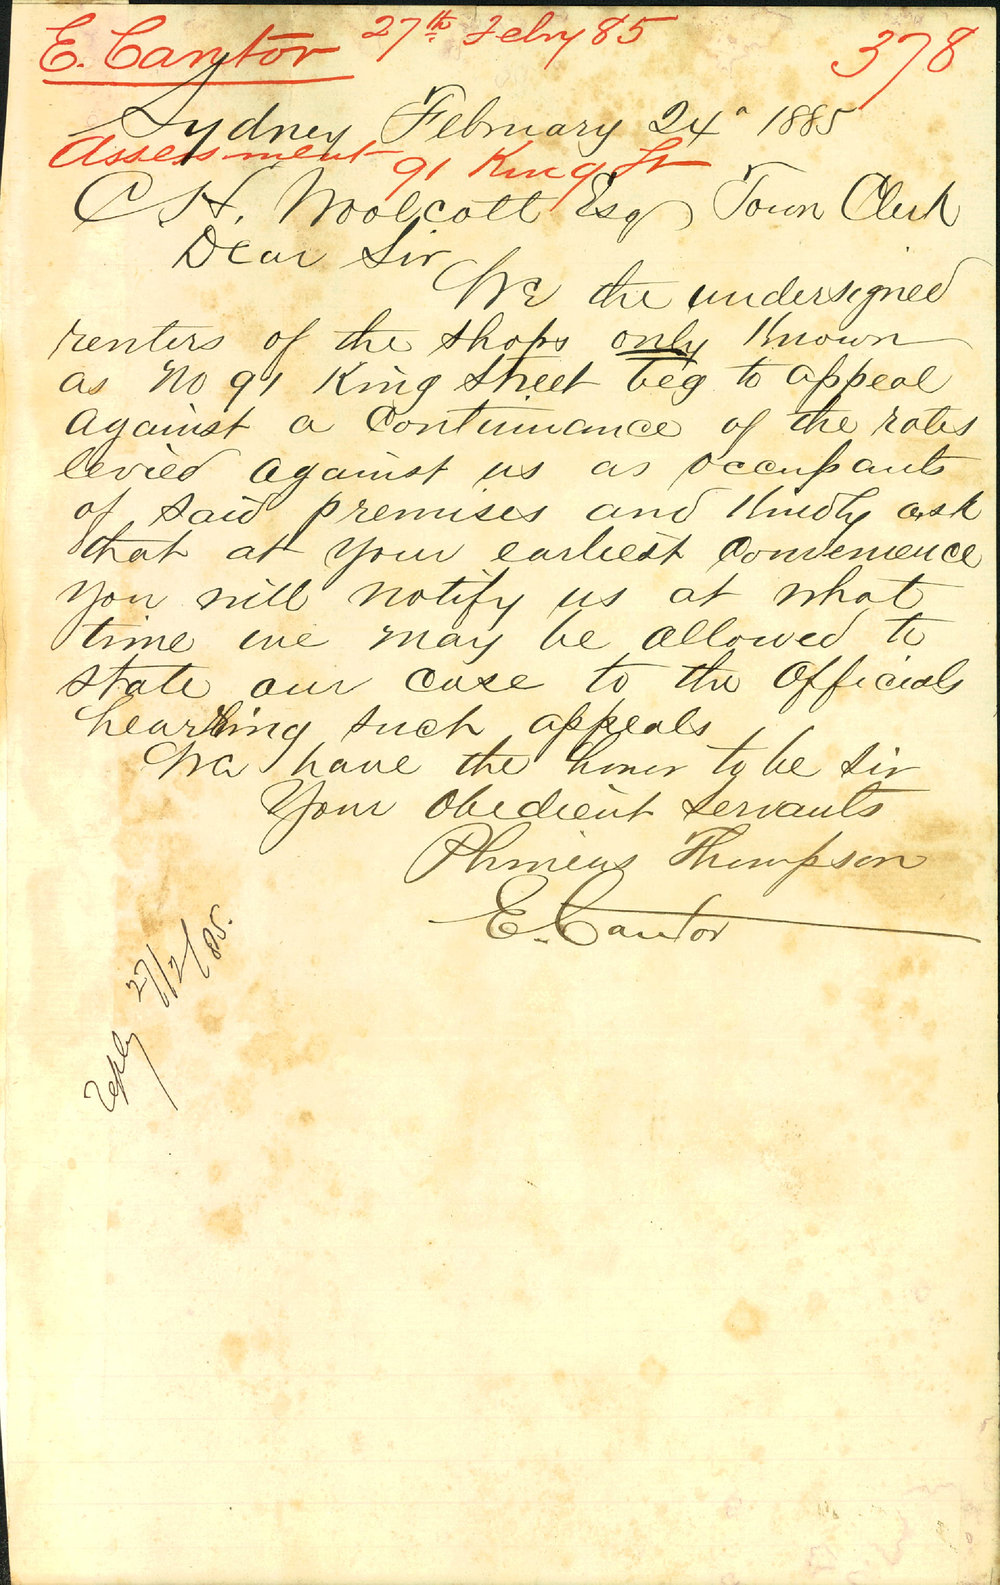 E. Cantor 27th Febry 85 378
Sydney February 24° 1885
Assessment 91 King St
C H. Woolcott Esq Town Clerk
Dear Sir
We the undersigned
renters of the shops only known
as No 91 King Street beg to appeal
against a continuance of the rates
levied against us as occupants
of said premises and kindly ask
that at your earliest convenience
you will notify us at what
time we may be allowed to
state our case to the Officials
hearing such appeals
We have the honor to be Sir
Your Obedient Servants
Phineas Thompson
E. Cantor
reply 27/2/85.